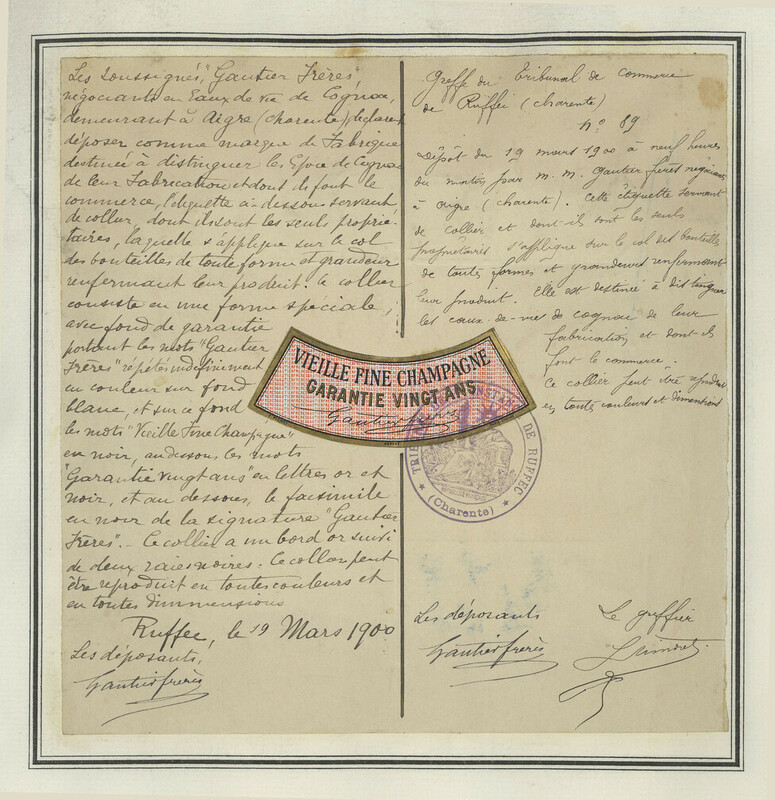 Les soussignés, "Gautier Frères",
négociants en Eaux de vie de Cognac,
demeurant à Aigre (charente), déclarent
déposer comme marque de Fabrique
destinée à distinguer les Eaux de Cognac
de leur Fabrication et dont ils font le
commerce, l'étiquette ci-dessous servant
de collier, dont ils sont les seuls proprié-
taires, laquelle s'applique sur le col
des bouteilles de toute forme et grandeur
renfermant leur produit. Ce collier
consiste en une forme spéciale,
avec fond de garantie
portant les mots "Gautier
Frères" répétés indéfiniment
en couleur sur fond
blanc, et sur ce fond
les mots "Vieille Fine Champagne"
en noir, au dessous les mots
"Garantie vingt ans" en lettres or et
noir, et au dessous, le facsimile
en noir de la signature "Gautier
Frères". - Ce collier a un bord or suivi
de deux raies noires. Ce collier peut
être reproduit en toutes couleurs et
en toutes dimmensions
Ruffec, le 19 Mars 1900
Les déposants,
Gautier frères
VIEILLE FINE CHAMPAGNE
GARANTIE VINGT ANS
Gautier frères
Greffe du Tribunal de commerce
de Ruffec (charente)
No 89
Dépôt du 19 mars 1900 à neuf heures
du matin par M. M. Gautier frères négociants
à Aigre (charente). Cette étiquette servant
de collier et dont ils sont les seuls
propriétaires s'applique sur le col des bouteilles
de toutes formes et grandeurs renfermant
leur produit. Elle est destinée à distinguer
les eaux-de-vies de cognac de leur
fabrication et dont ils
font le commerce.
Ce collier peut être reproduit
en toutes couleurs et dimensions
DE RUFFEC
(Charente)
Les déposants
Gautier frères
Le greffier